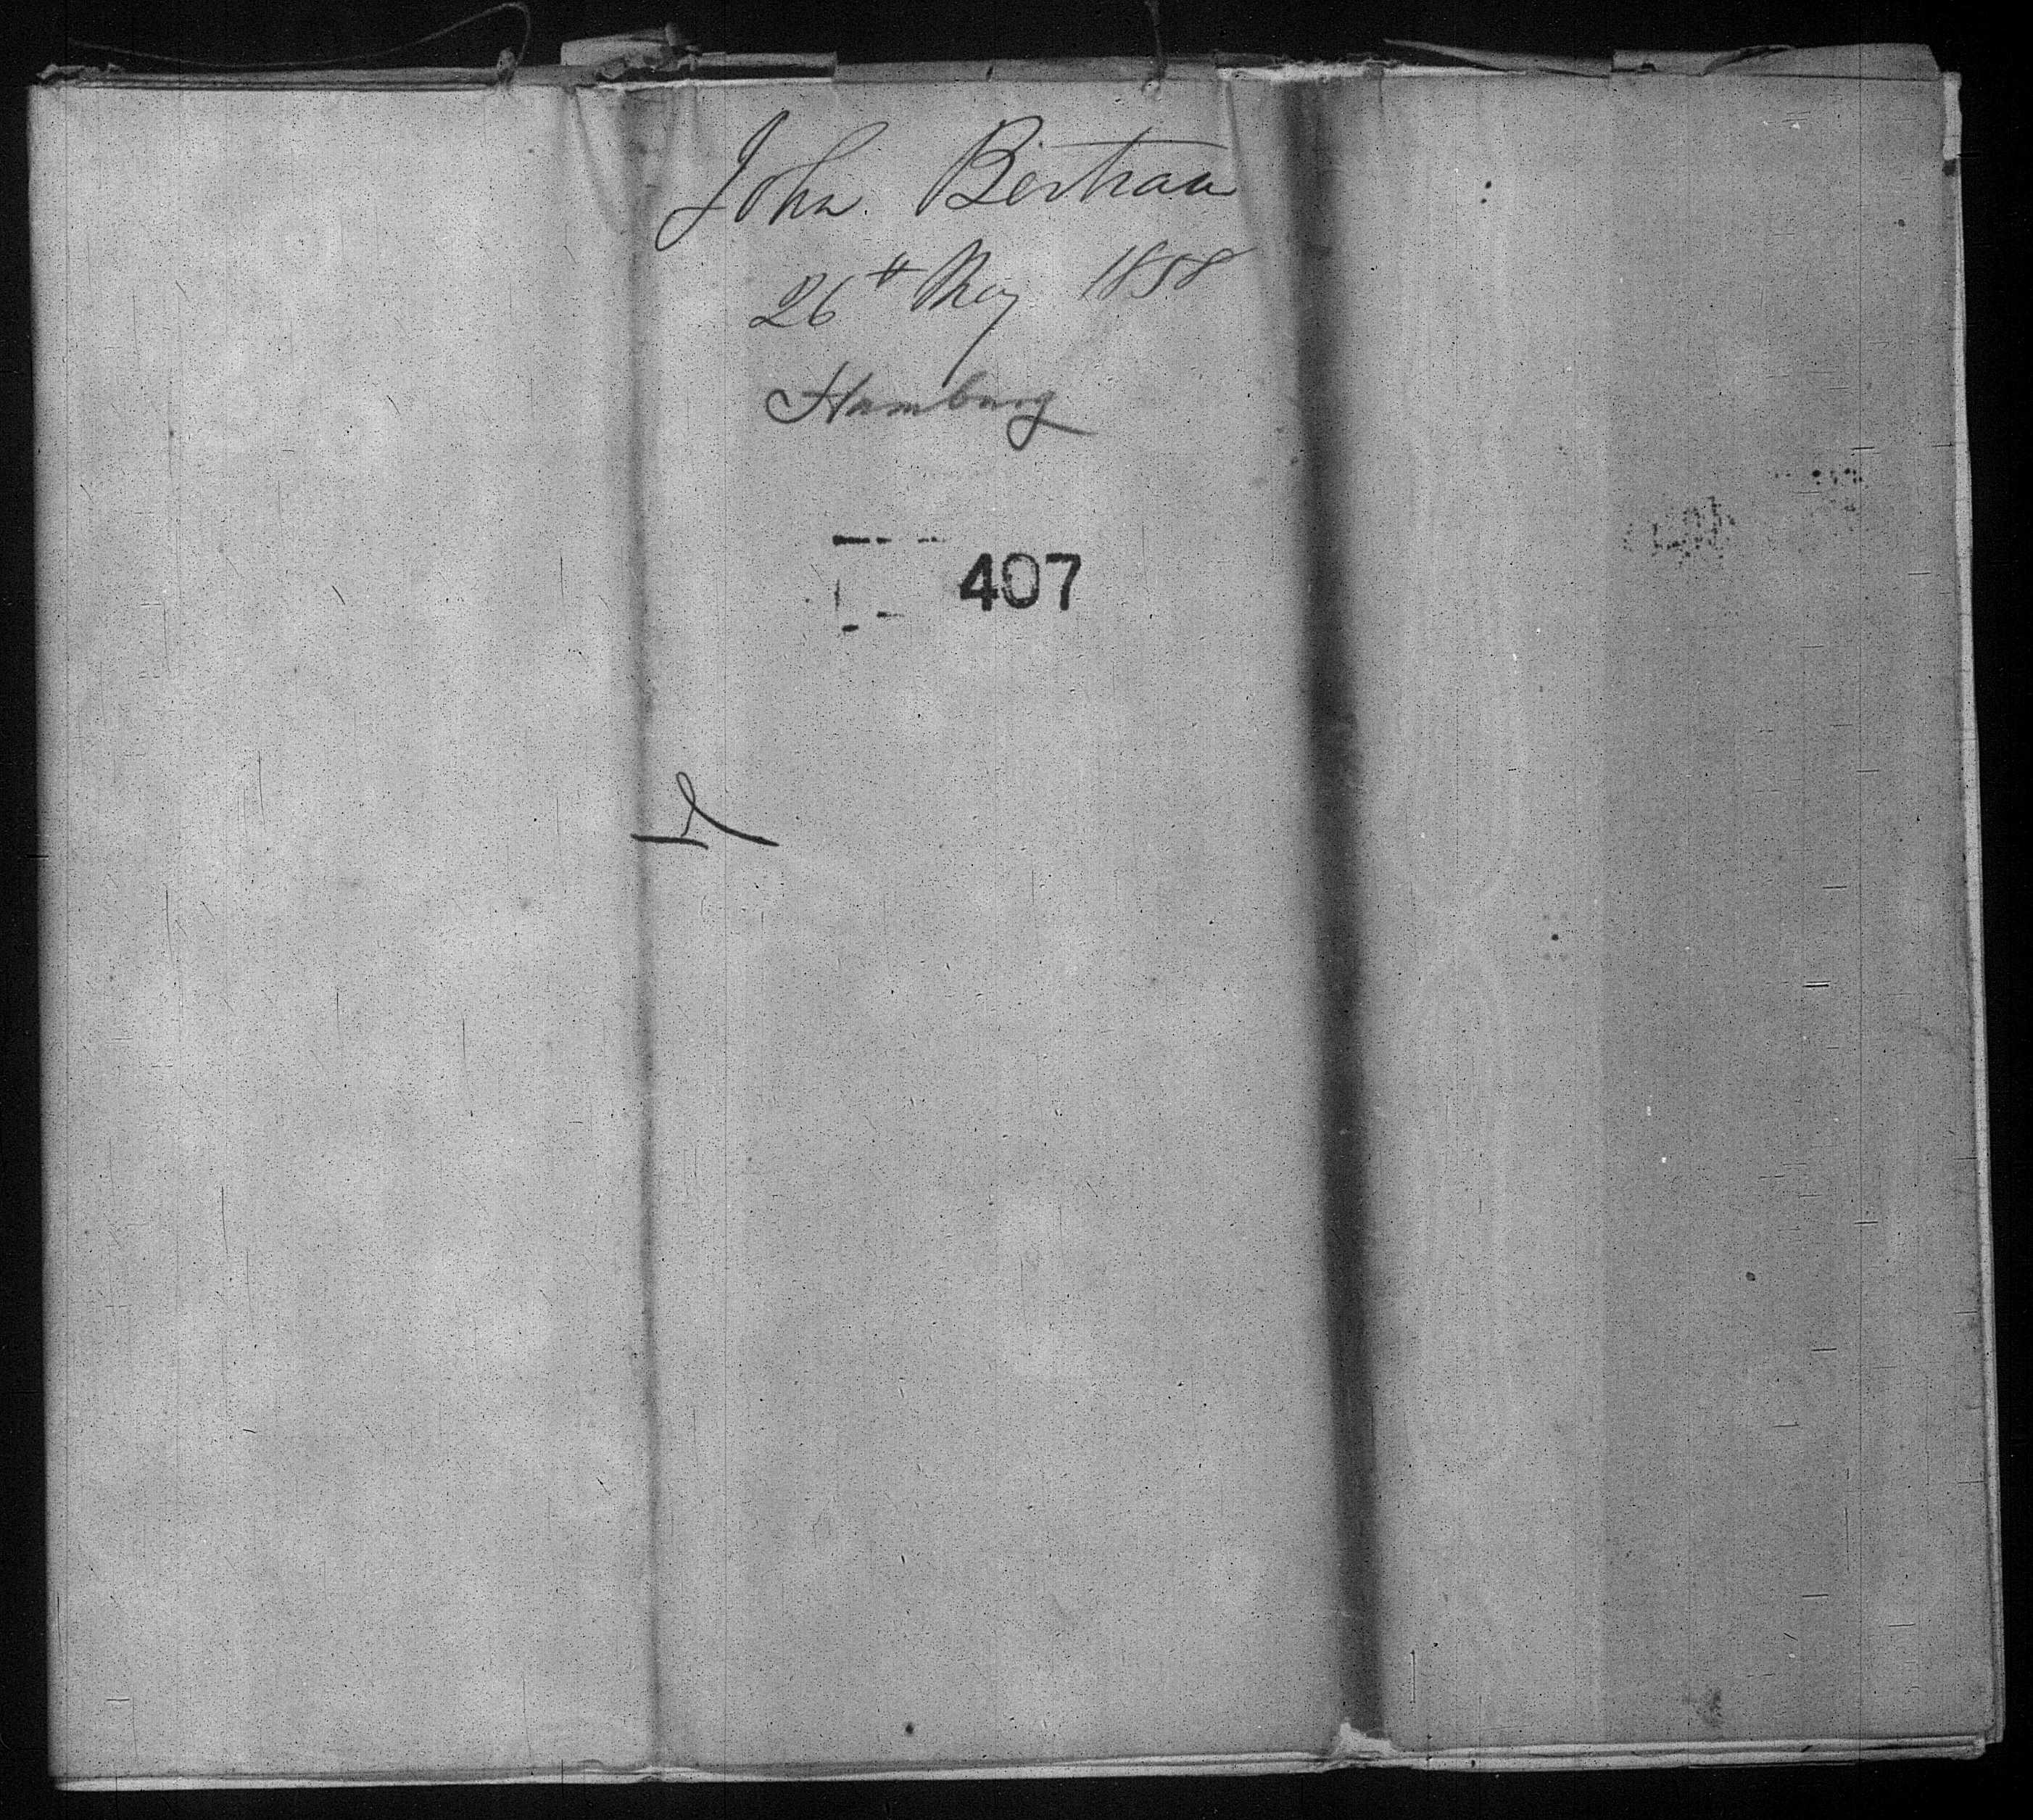 John Bertram
26th May 1858
Hamburg
407